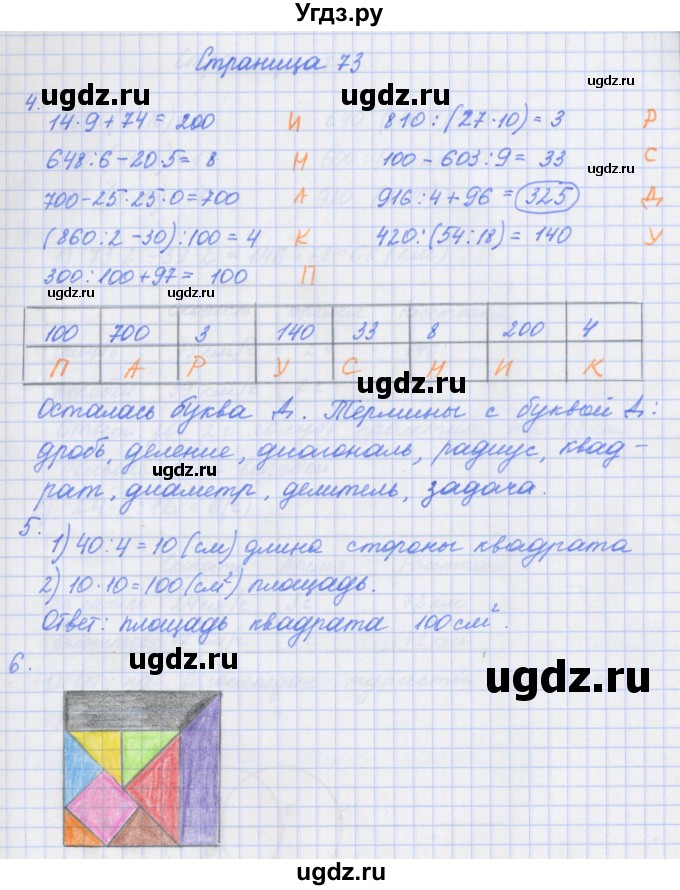 Угдз.ру
Страница 73
ugdz.ru ugdz.ru
4.
14·9+74= 200 И 810:(27·10)= 3 Р
648:6-20·5= 8 Н 100-603:9= 33 С
ugdz.ru
700-25·25·0=700 А 916:4+96= 325 Д
(860:2-30):100= 4 К 420:(54:18)= 140 У
300:100+97= 100 П
ugdz.ru ugdz.ru ugdz.ru
100 700 3 140 33 8 200 4
П А Р У С Н И К
ugdz.ru
Осталась буква Д. Термины с буквой Д:
дробь, деление, диагональ, радиус, квад-
ugdz.ru
рат, диаметр, делитель, задача.
5.
1) 40:4=10(см) длина стороны квадрата
2) 10·10=100(см²) площадь.
Ответ: площадь квадрата 100см².
6.
ugdz.ru
ugdz.ru
ugdz.ru